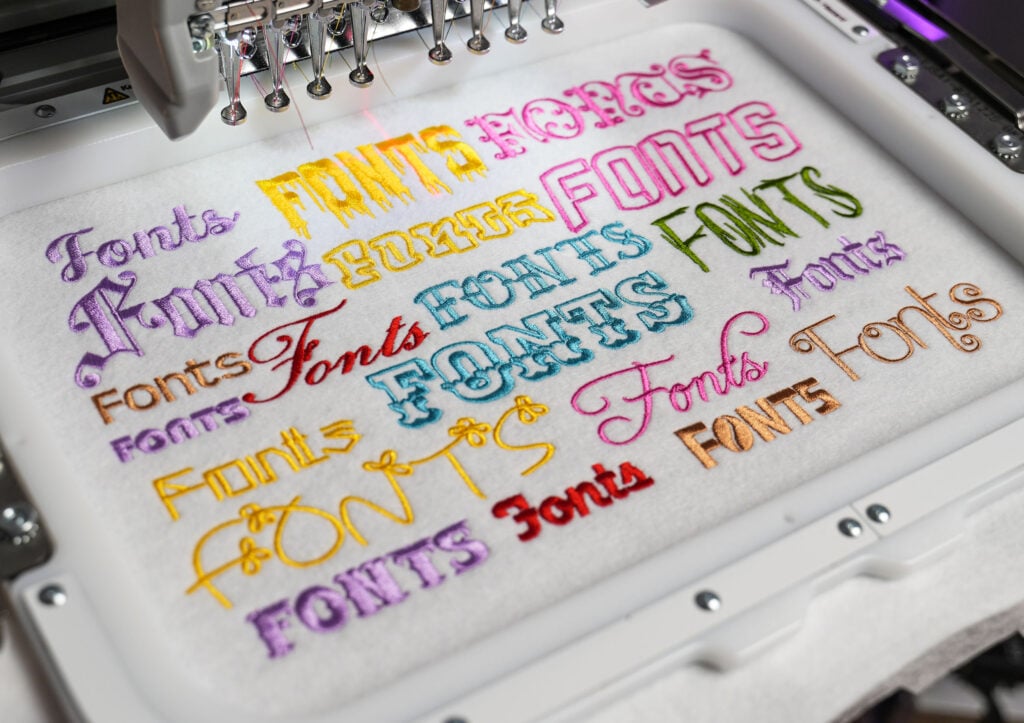 FONTS
FONTS
FONTS
Fonts
Fonts
FONTS
FONTS
Fonts
Fonts
FONTS
Fonts
Fonts
Fonts
Fonts
FONTS
FONTS
Fonts
FONTS
Fonts
FONTS